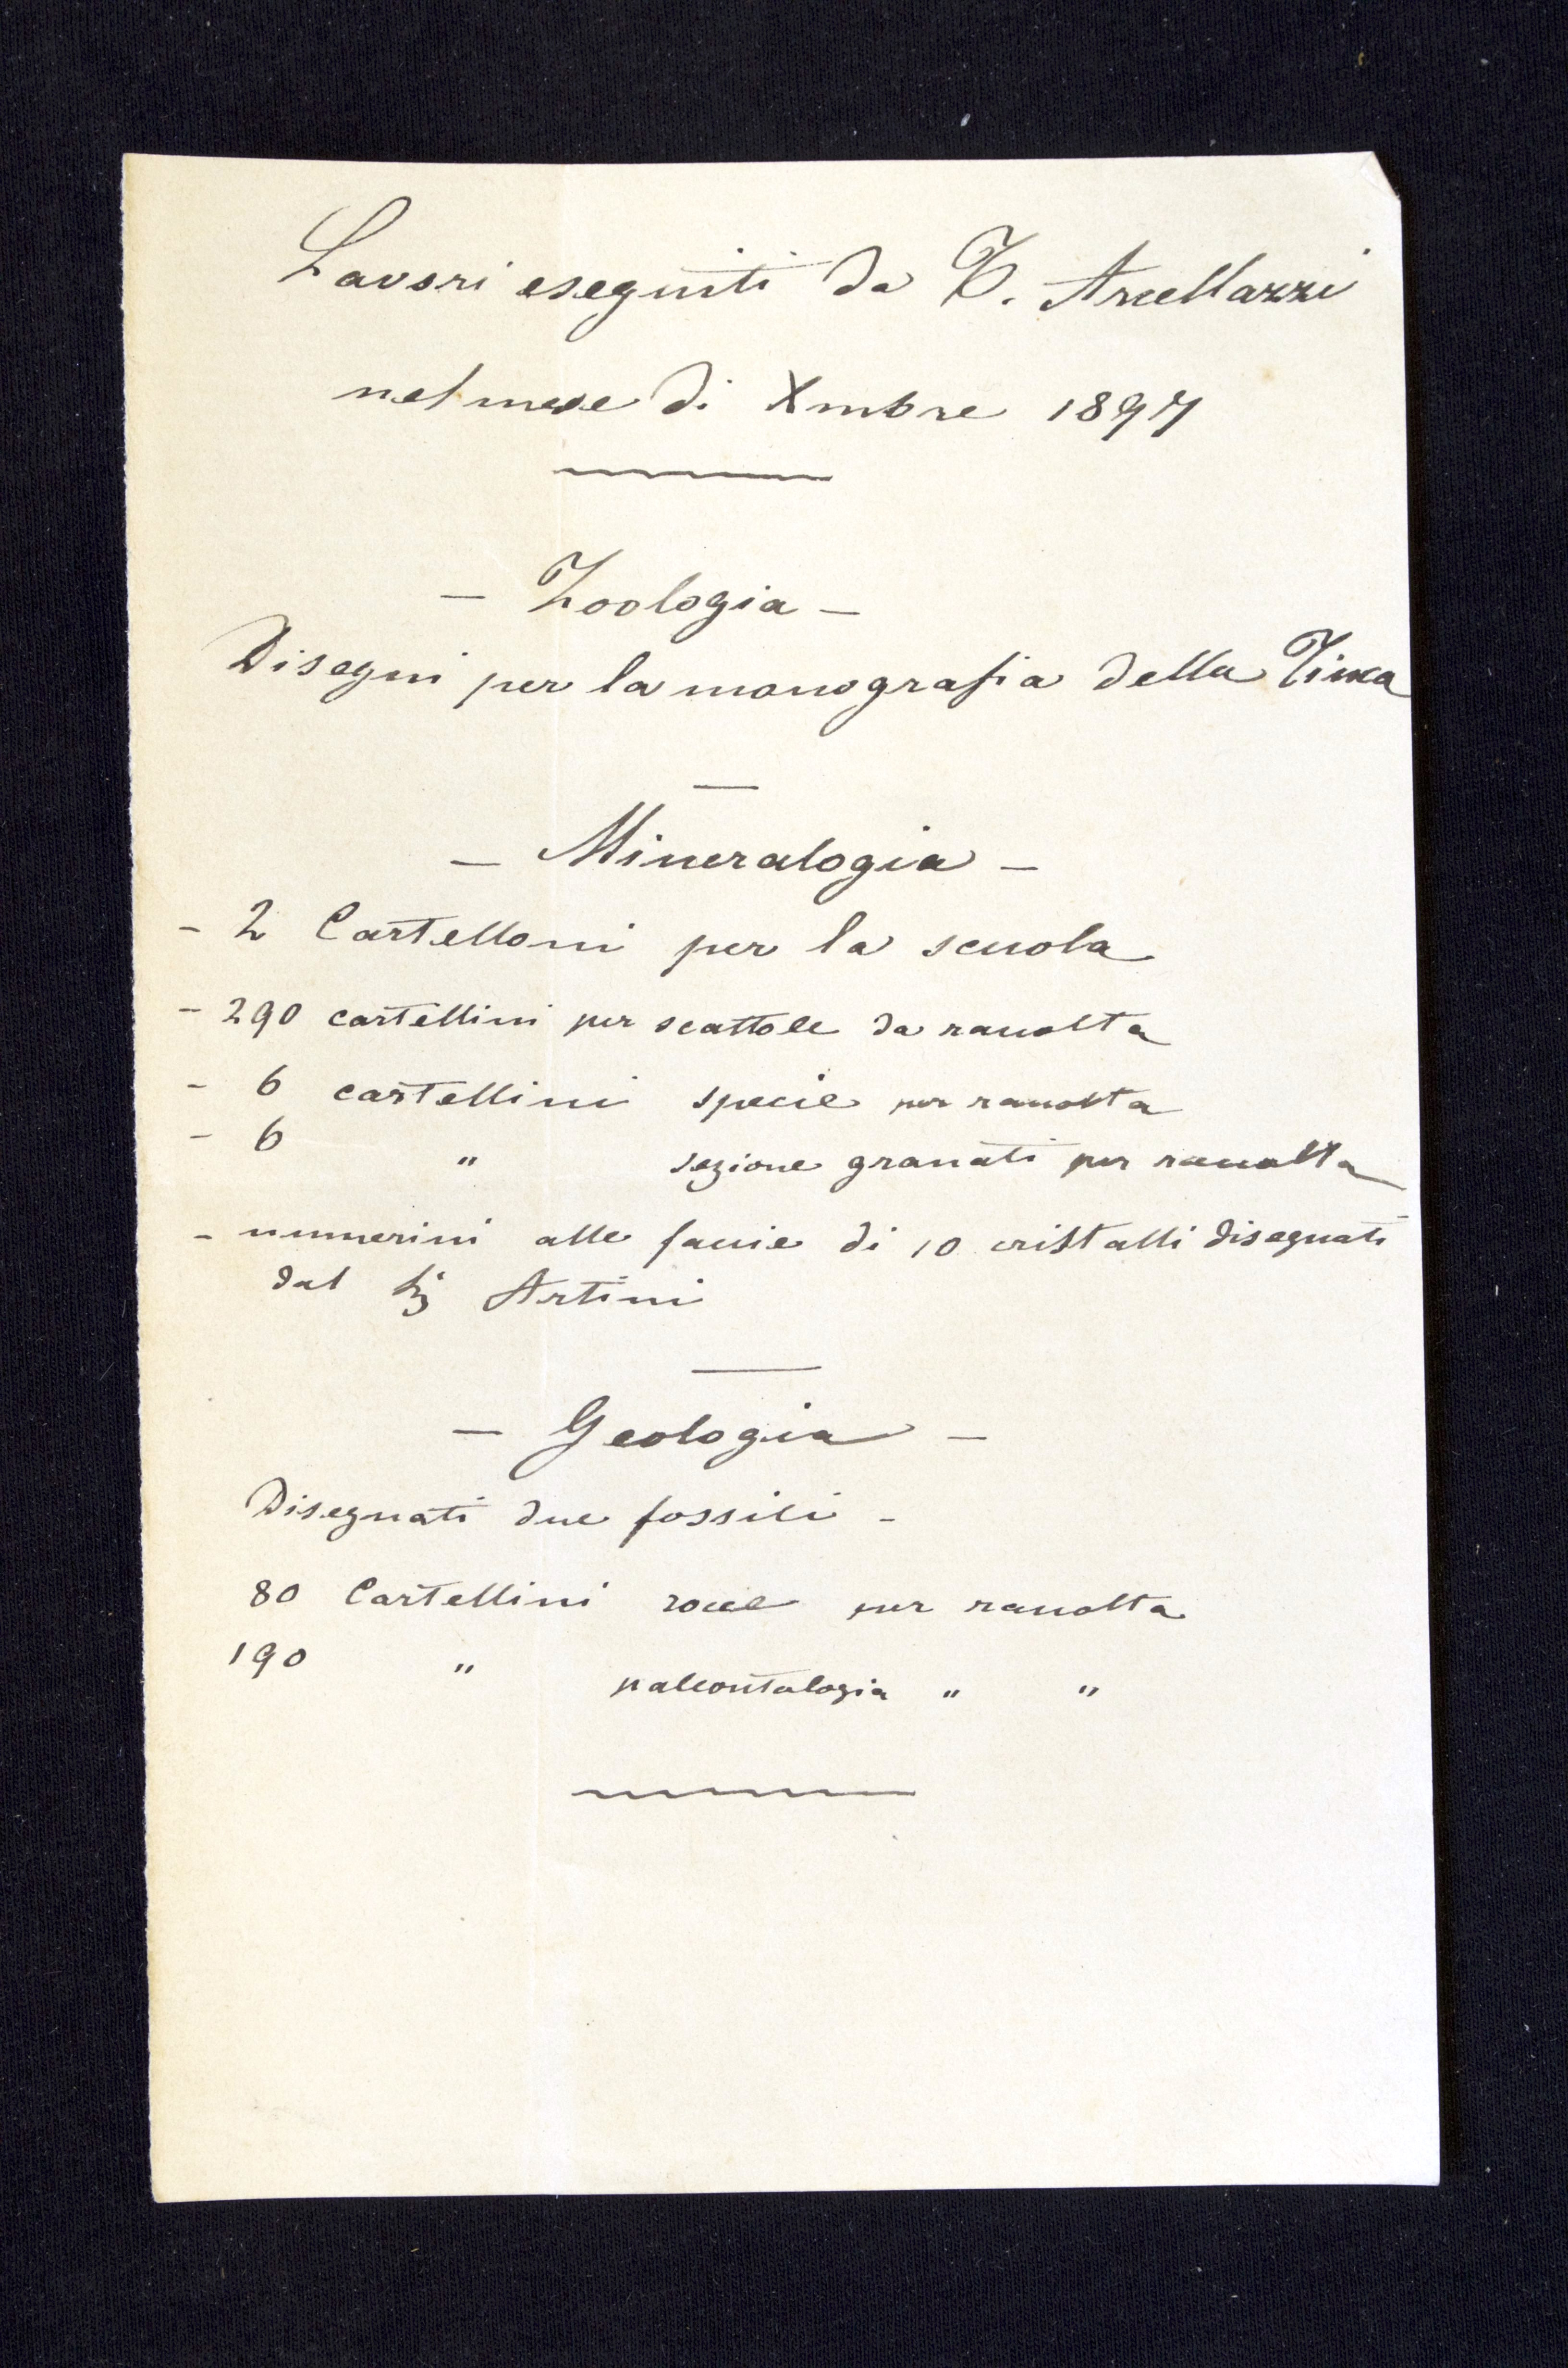 Lavori eseguiti da T. Arcellazzi
nel mese di Xmbre 1897
- Zoologia -
Disegni per la monografia della Tinca
- Mineralogia -
- 2 Cartelloni per la scuola
- 290 cartellini per scattole da raccolta
- 6 cartellini specie per raccolta
- 6 " sezione granati per raccolta
- numerini alle faccie di 10 cristalli disegnati
dal Sig Artini
- Geologia -
Disegnati due fossili -
80 Cartellini rocce per raccolta
190 " paleontologia " "